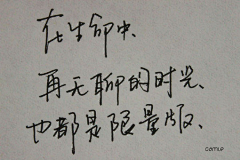 在生命中、
再无聊的时光、
也都是限量版、
comup